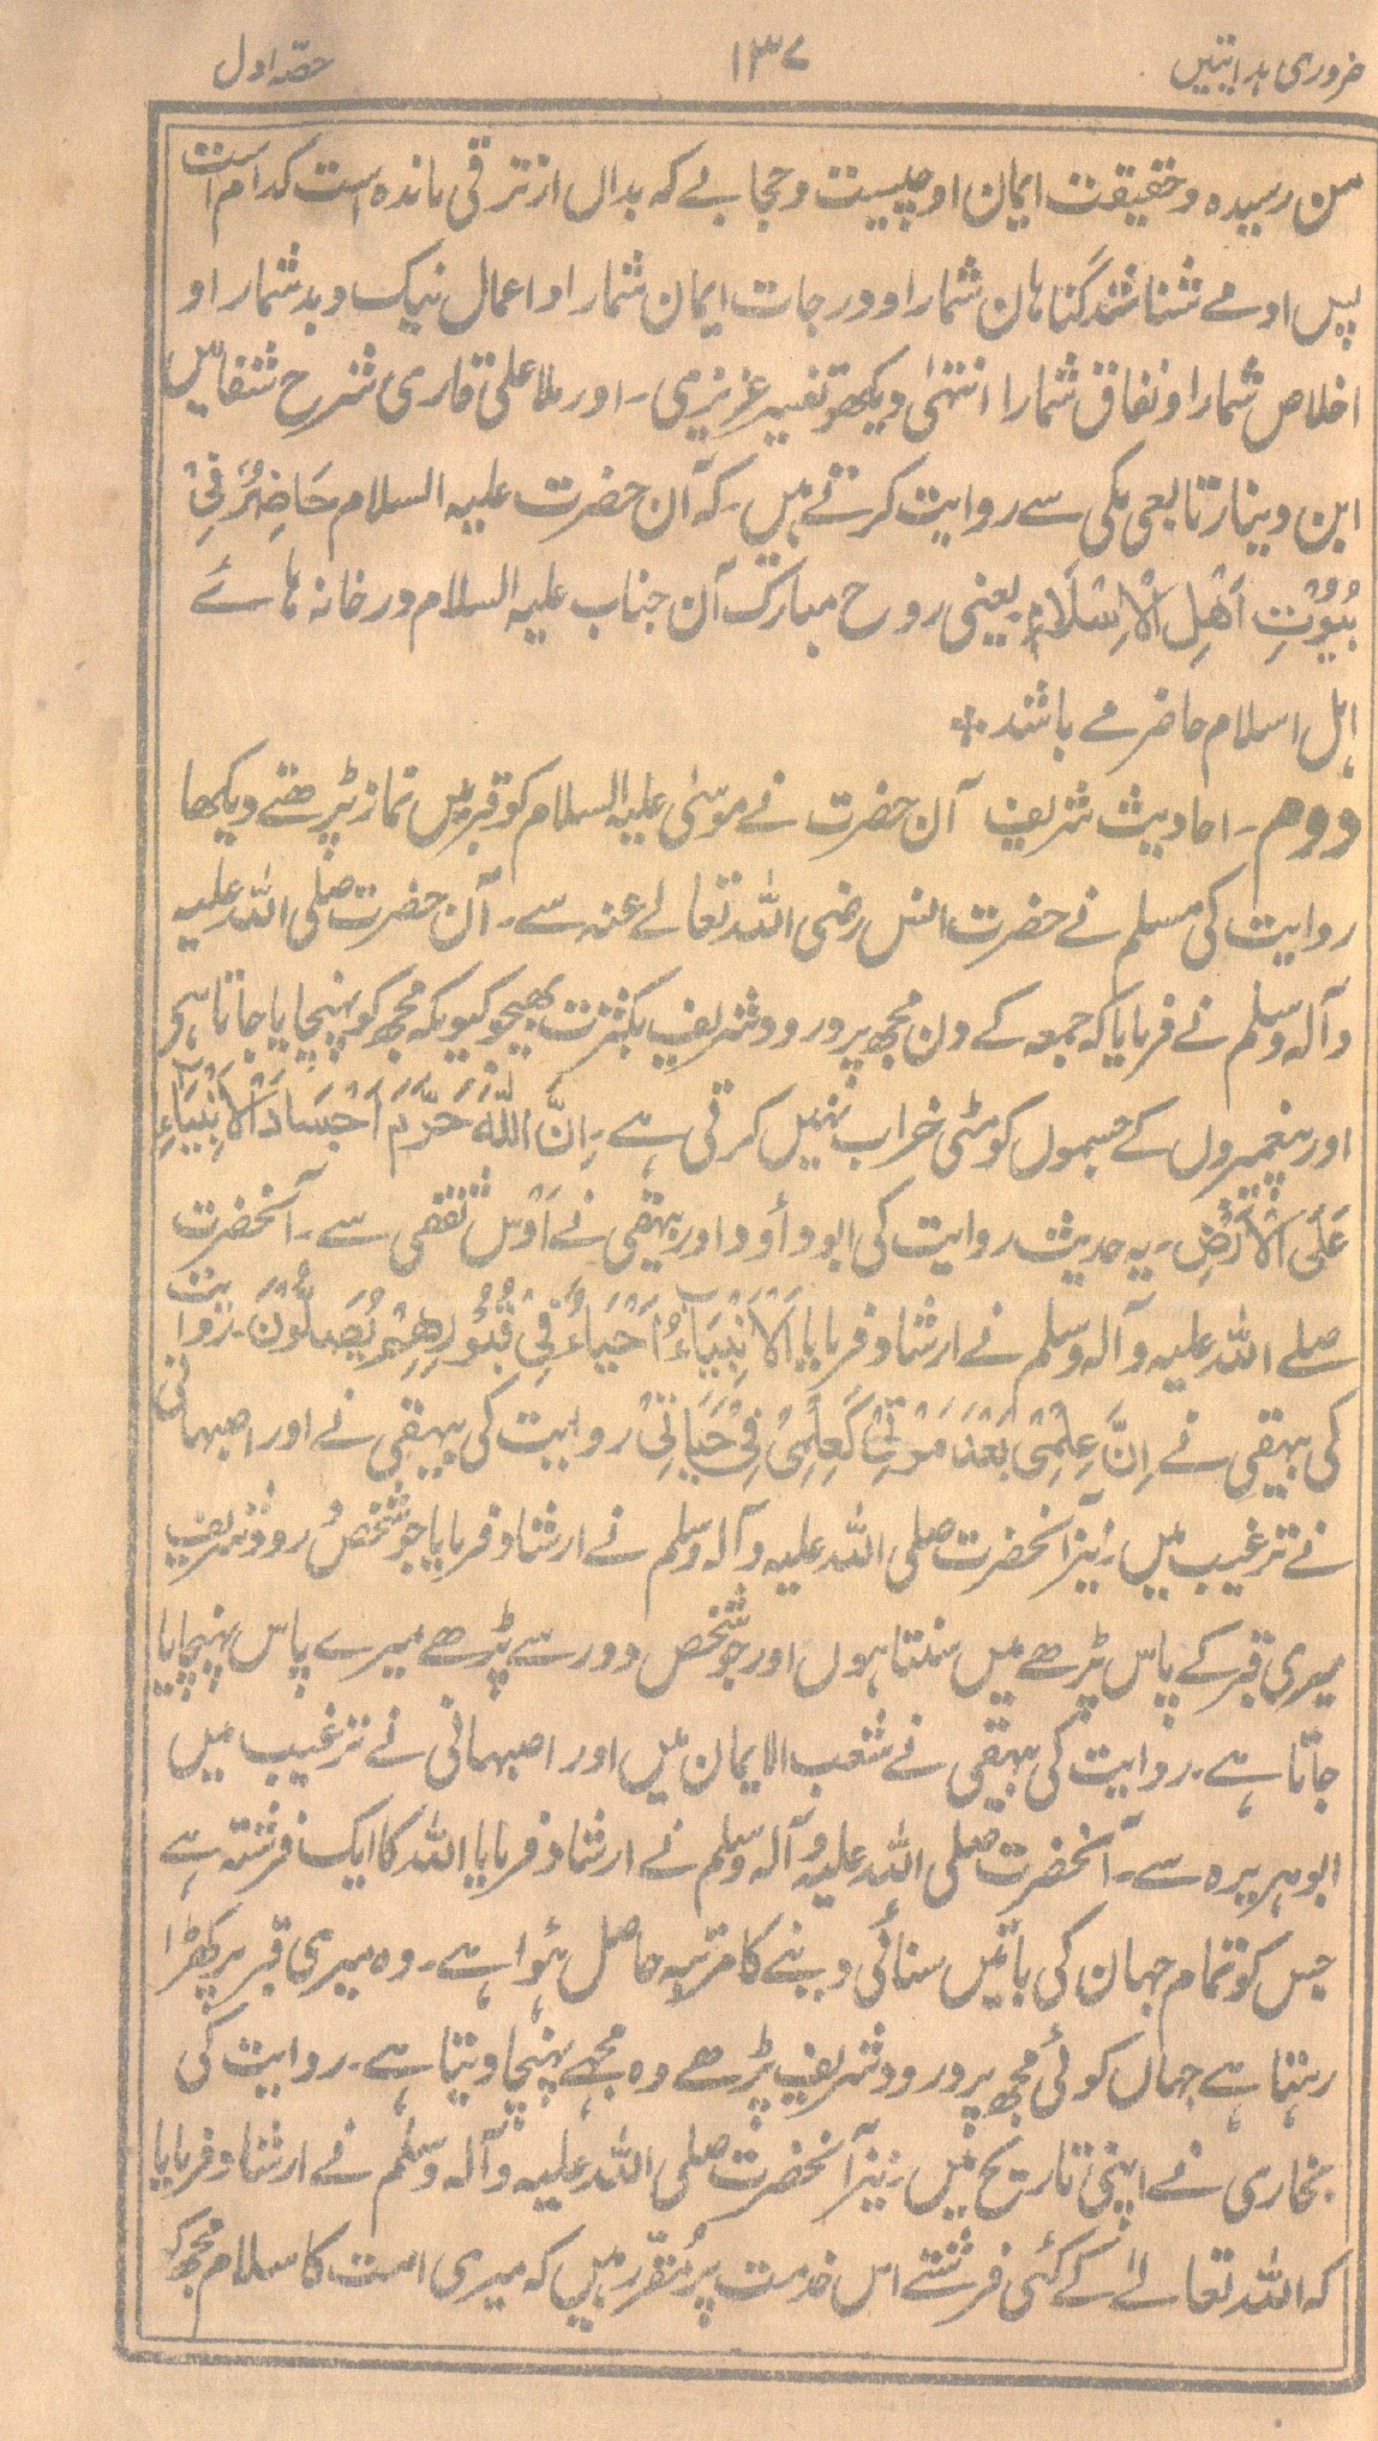 ضروری ہدایتیں ۱۳۷ حصّہ اول
من رسیدہ و حقیقت ایمان او چیست و حجابے کہ بداں از ترقی ماندہ است کدام است
پس او مے شناشد گناہان شمارا و درجات ایمان شمارا و اعمال نیک و بد شمارا و
اخلاص شمارا و نفاق شمارا انتہٰی دیکھو تفسیر عزیزی۔ اور ملا علی قاری شرح شفا میں
ابن دینار تابعی مکی سے روایت کرتے ہیں۔ کہ آن حضرت علیہ السلام حَاضِرٌ فِیْ
بُیُوْتِ اَھْلِ الْاِسْلَامِ یعنی روح مبارک آن جناب علیہ السلام در خانہ ہائے
اہل اسلام حاضر مے باشد ٭
دوم۔ احادیث شریف آن حضرت نے موسیٰ علیہ السلام کو قبر میں نماز پڑھتے دیکھا
روایت کی مسلم نے حضرت انس رضی اللہ تعالےٰ عنہ سے۔ آن حضرت صلی اللہ علیہ
وآلہ وسلم نے فرمایا کہ جمعہ کے دن مجھ پر درود شریف بکثرت بھیجو کیونکہ مجھ کو پہنچایا جاتا ہے
اور پیغمبروں کے جسموں کو مٹی خراب نہیں کرتی ہے۔ اِنَّ اللّٰہَ حَرَّمَ اَجْسَادَ الْاَنْبِیَآءِ
عَلَی الْاَرْضِ۔ یہ حدیث روایت کی ابو دأود اور بیہقی نے اَوْس ثقفی سے۔ آنحضرت
صلے اللہ علیہ وآلہ وسلم نے ارشاد فرمایا اَلْاَنْبِیَاءُ اَحْیَاءٌ فِیْ قُبُوْرِھِمْ یُصَلُّوْنَ۔ روایت
کی بیہقی نے اِنَّ عِلْمِیْ بَعْدَ مَوْتِیْ کَعِلْمِیْ فِیْ حَیَاتِیْ روایت کی بیہقی نے اور اصبہانی
نے ترغیب میں۔ نیز آنحضرت صلی اللہ علیہ وآلہ وسلم نے ارشاد فرمایا جو شخص درود شریف
میری قبر کے پاس پڑھے میں سنتا ہوں اور جو شخص دور سے پڑھے میرے پاس پہنچایا
جاتا ہے۔ روایت کی بیہقی نے شعب الایمان میں اور اصبہانی نے ترغیب میں
ابو ہریرہ سے۔ آنحضرت صلی اللہ علیہ وآلہ وسلم نے ارشاد فرمایا اللہ کا ایک فرشتہ ہے
جس کو تمام جہان کی باتیں سنائی دینے کا مرتبہ حاصل ہوا ہے۔ وہ میری قبر پر کھڑا
رہتا ہے جہاں کوئی مجھ پر درود شریف پڑھے وہ مجھے پہنچا دیتا ہے۔ روایت کی
بخاری نے اپنی تاریخ میں۔ نیز آنحضرت صلی اللہ علیہ وآلہ وسلم نے ارشاد فرمایا
کہ اللہ تعالےٰ کے کئی فرشتے اس خدمت پر مقرر ہیں کہ میری امت کا سلام مجھ کو